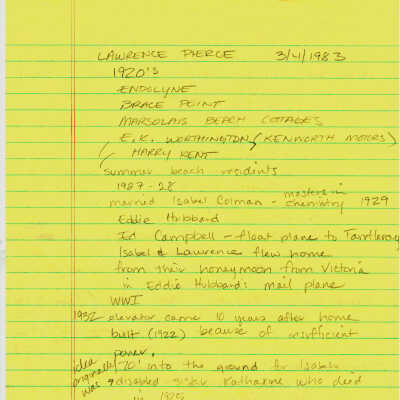 LAWRENCE PIERCE 3/4/1983
1920's
ENDOLYNE
BRACE POINT
MARSOLAIS BEACH COTTAGES
E.K. WORTHINGTON (KENWORTH MOTORS)
HARRY KENT
summer beach residents
1927-28
married Isabel Colman - masters in chemistry 1929
Eddie Hubbard
Ed Campbell - float plane to
Isabel & Lawrence flew home
from their honeymoon from Victoria
in Eddie Hubbard's mail plane
WWI
1932 elevator came 10 years after home
built (1922) because of insufficient
power.
idea originally was
70' into the ground for Isabel's
disabled sister Katharine who died
in